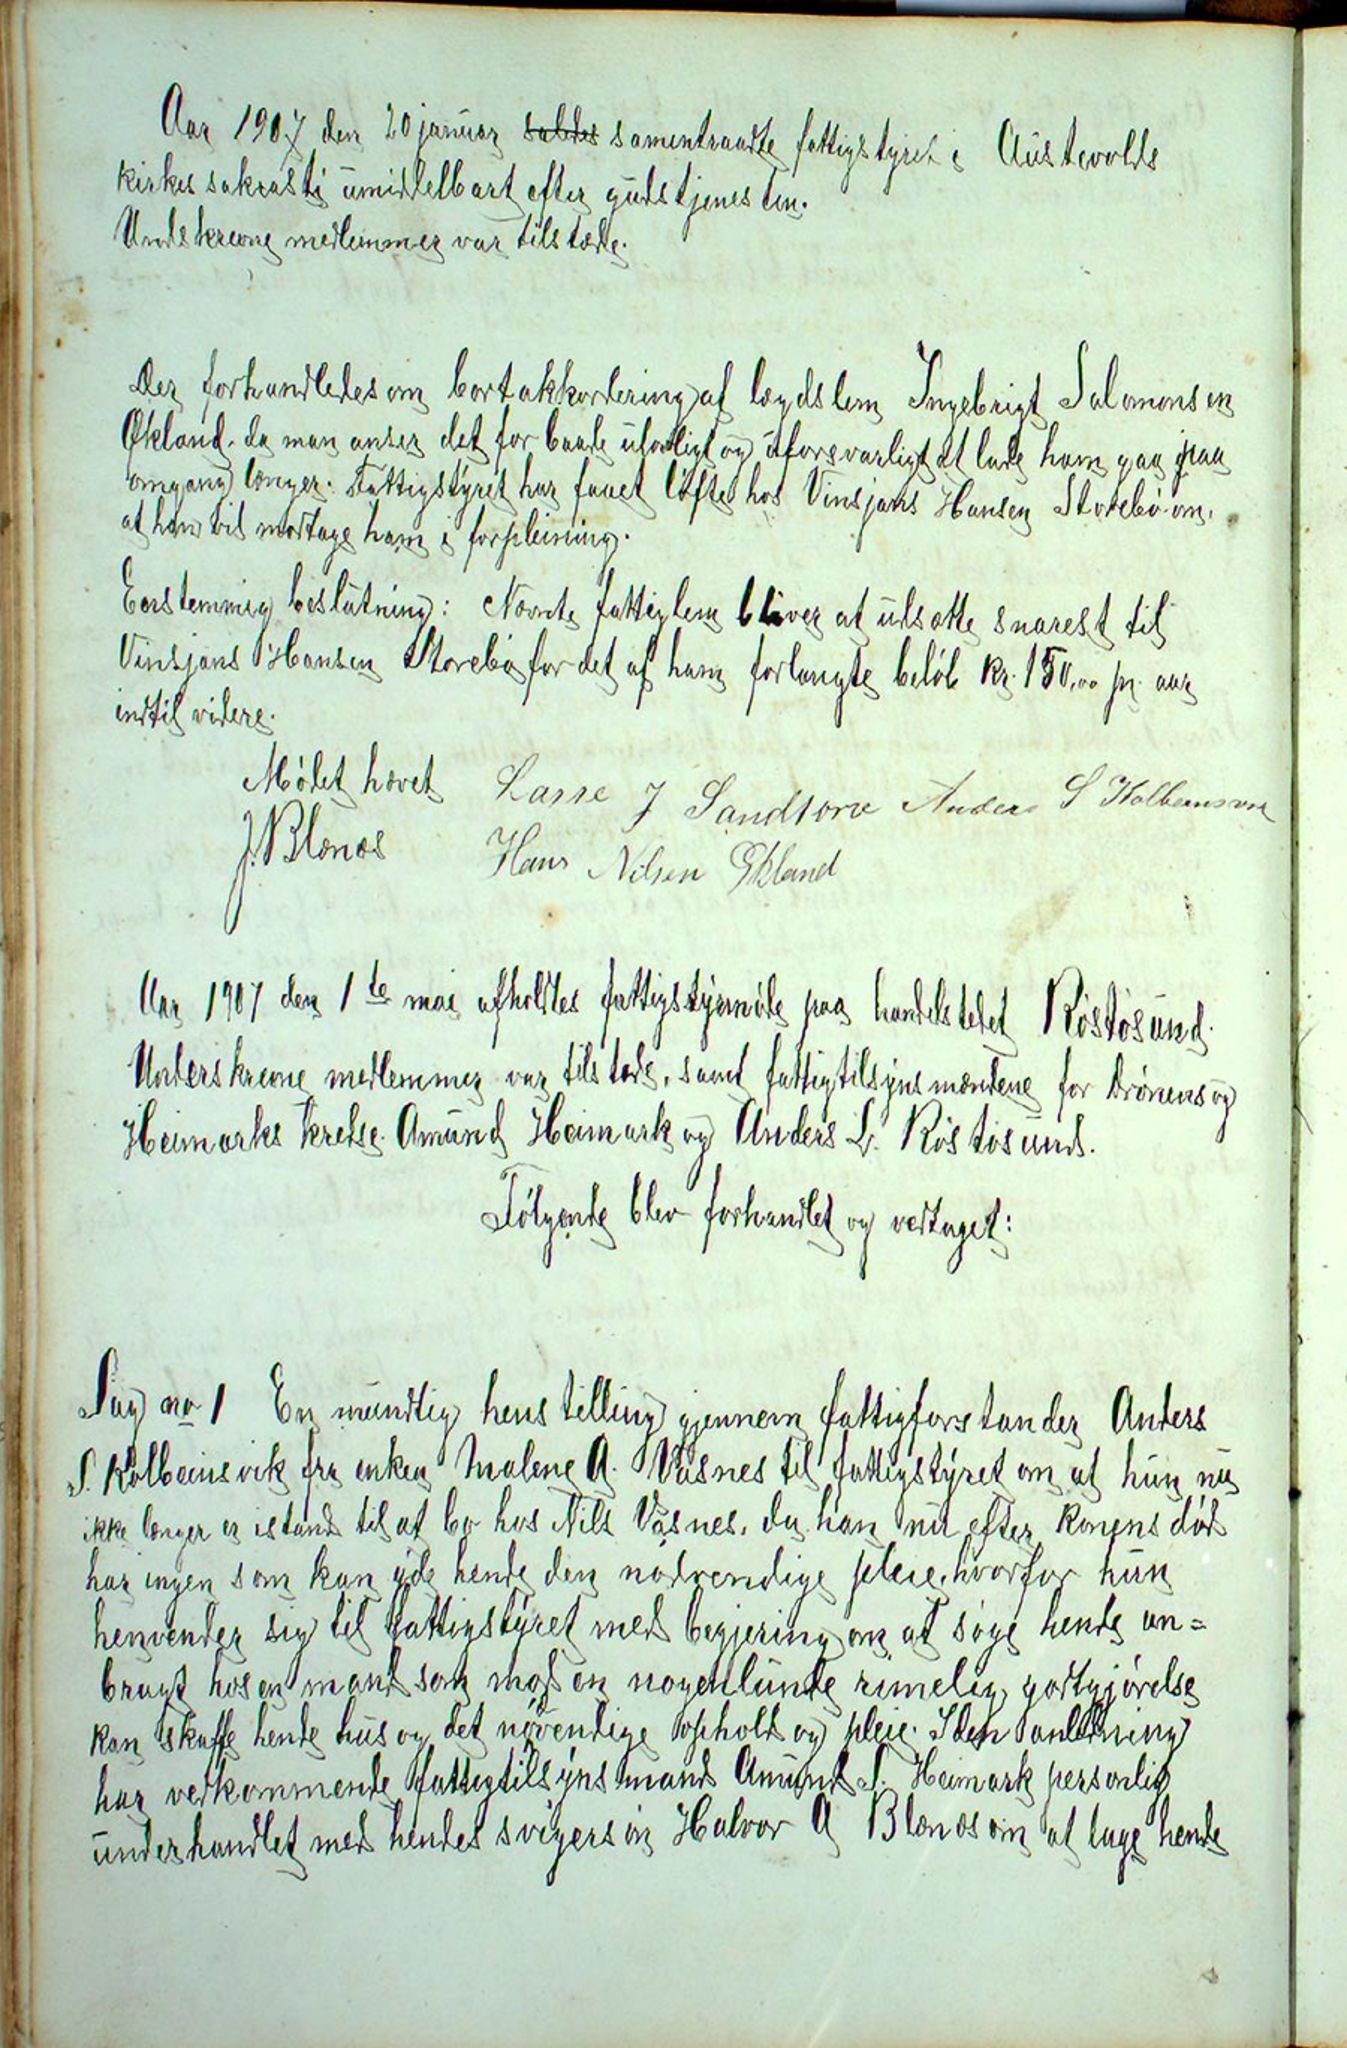 Aar 1907 den 20 januar samentraadte fattigstyret i Austevolds
kirkes sakrasti umiddelbart efter gudstjenesten.
Undskrevne medlemmer var tilstæde.
Der forhandledes om bortakkordering af lægdslem Ingebrigt Salomonsen
Økland. da man anser det for baade ulovligt og uforsvarligt at lade ham gaa paa
omgang længer. Fattigstyret har faaet løfte hos Vinsjans Hansen Storebø om,
at han vil modtage ham i forpleining.
Eenstemmig beslutning: Nævnte fattiglem bliver at udsætte snarest til
Vinsjans Hansen Storebø for det af ham forlangte beløb kr. 150,00 pr. aar
indtil videre.
Mødet hævet Lasse J Sandtorv Anders S Kolbeinsvik
J. Blænæs Hans Nilsen Økland
Aar 1907 den 1te mai afholdtes fattigstyrmøde paa handelstedet Røstøsund.
Underskrevne medlemmer var tilstæde, samt fattigtilsynsmændene for Drønens og
Heimarks kredse. Amund Heimark og Anders L. Røstøsund.
Følgende blev forhandlet og vedtaget:
Sag no 1 En mundtlig henstilling gjennem fattigforstander Anders
S. Kolbeinsvik fra enken Malene A. Våsnes til fattigstyret om at hun nu
ikke længer er istand til at bo hos Nils Våsnes, da han nu efter konens død
har ingen som kan yde hende den nødvendige pleie, hvorfor hun
henvender sig til fattigstyret med begjering om at søge hende an=
bragt hos en mand som mod en nogenlunde rimelig godtgjørelse
kan skaffe hende hus og det nøvendige ophold og pleie. I den anledning
har vedkommende fattigtilsynsmand Amund S. Heimark personlig
underhandlet med hendes svigersøn Halvor A Blænæs om at tage hende